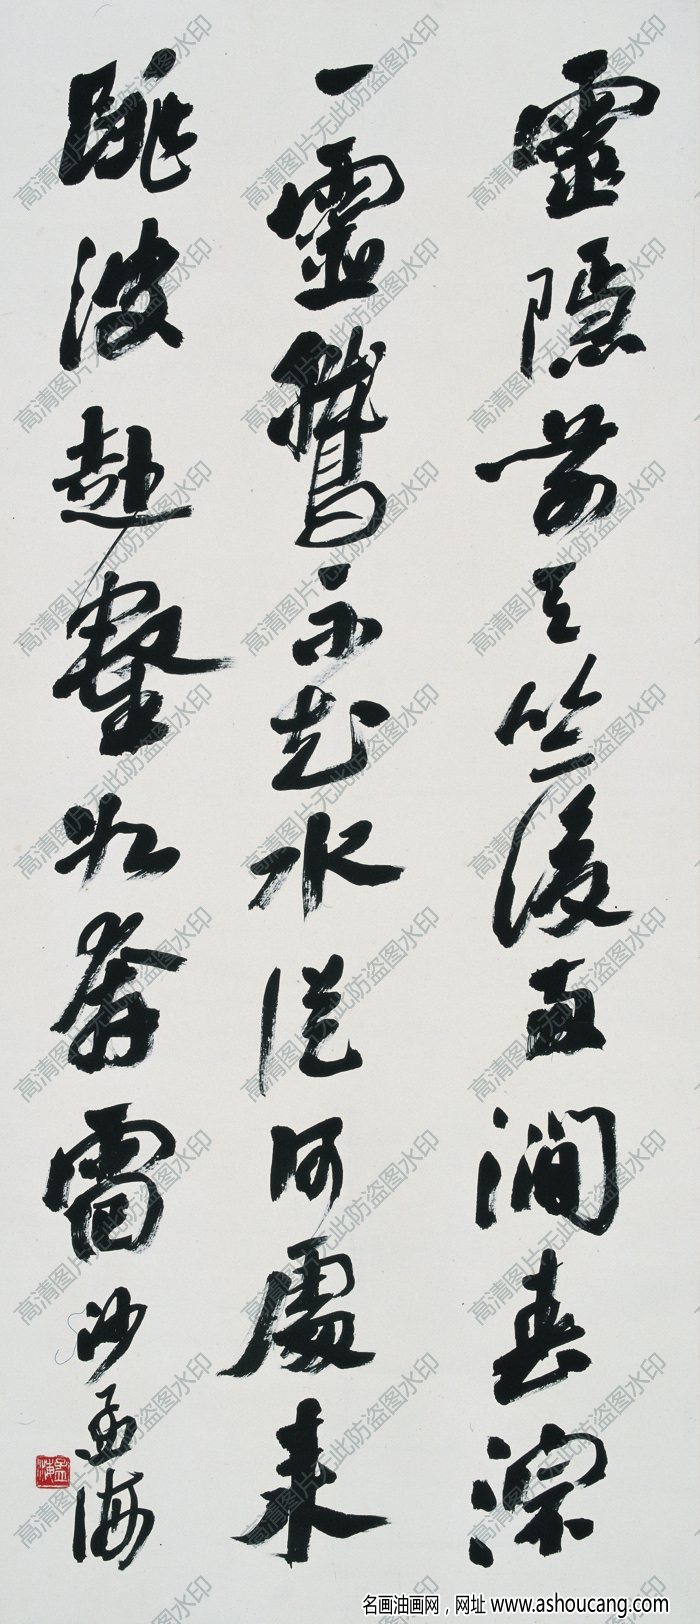 靈隱前天竺後兩澗春淙
一靈鷲不知水從何處來
跳波赴壑如奔雷 沙孟海
孟海
高清图片无此防盗图水印
名画油画网，网址 www.ashoucang.com